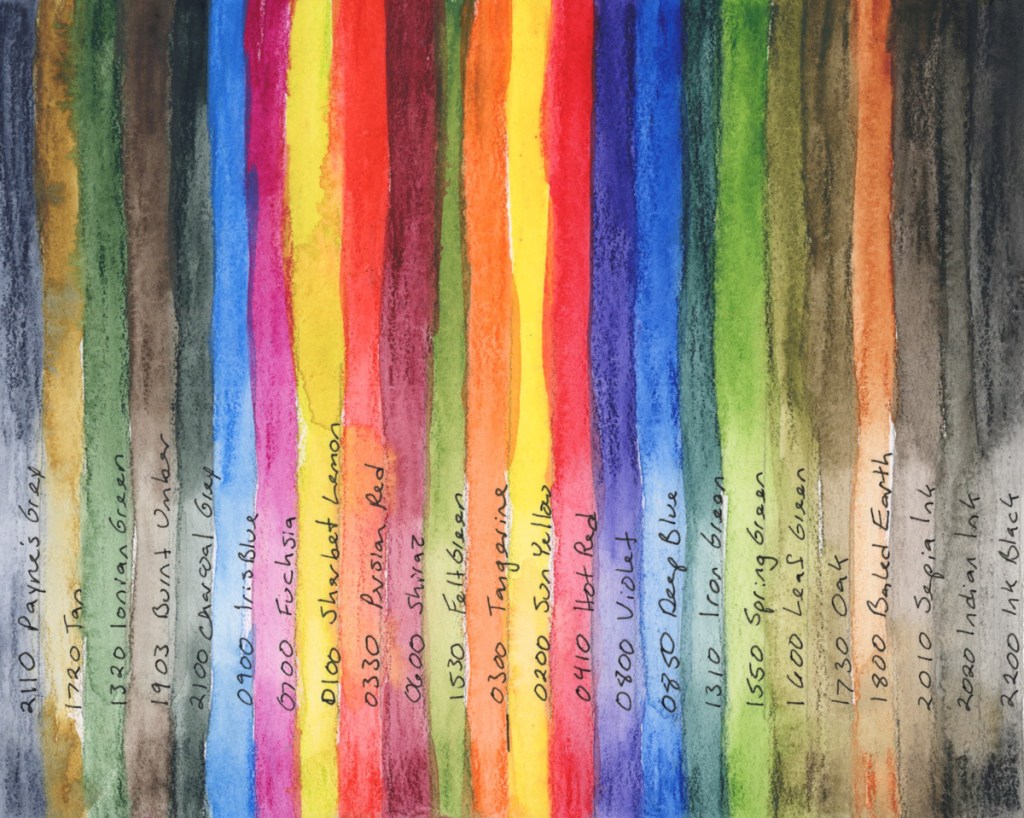 2110 Payne's Grey
1720 Tan
1320 Ionian Green
1903 Burnt Umber
2100 Charcoal Grey
0900 Iris Blue
0700 Fuchsia
0100 Sharbet Lemon
0330 Persian Red
0600 Shiraz
1530 Felt Green
0300 Tangerine
0200 Sun Yellow
0410 Hot Red
0800 Violet
0850 Deep Blue
1310 Iron Green
1550 Spring Green
1600 Leaf Green
1730 Oak
1800 Baked Earth
2010 Sepia Ink
2020 Indian Ink
2200 Ink Black